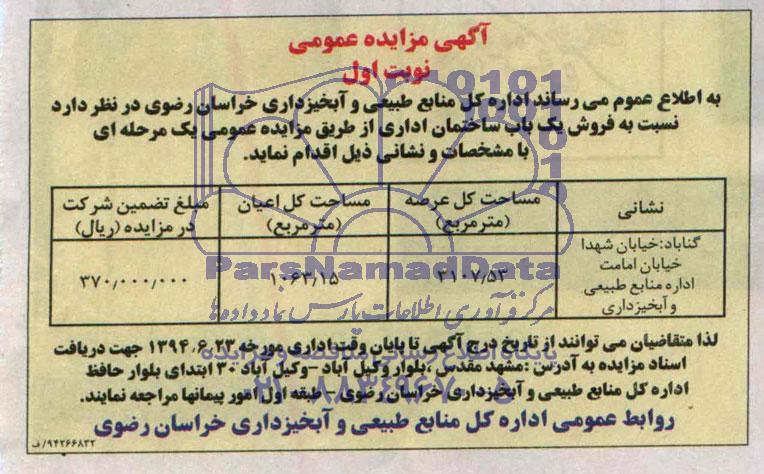 آگهی مزایده عمومی
نوبت اول
به اطلاع عموم می رساند اداره کل منابع طبیعی و آبخیزداری خراسان رضوی در نظر دارد
نسبت به فروش یک باب ساختمان اداری از طریق مزایده عمومی یک مرحله ای
با مشخصات و نشانی ذیل اقدام نماید.
نشانی
مساحت کل عرصه
(مترمربع)
مساحت کل اعیان
(مترمربع)
مبلغ تضمین شرکت
در مزایده (ریال)
گناباد:خیابان شهدا
خیابان امامت
اداره منابع طبیعی
و آبخیزداری
۳۱۰۷٫۵۳
۱۰۶۳٫۱۵
۳۷۰٫۰۰۰٫۰۰۰
ParsNamadData
مرکز فرآوری اطلاعات پارس نماد داده ها
لذا متقاضیان می توانند از تاریخ درج آگهی تا پایان وقت اداری مورخه ۱۳۹۴٫۶٫۲۳ جهت دریافت
اسناد مزایده به آدرس :مشهد مقدس ،بلوار وکیل آباد -وکیل آباد ۳۰ ابتدای بلوار حافظ
اداره کل منابع طبیعی و آبخیزداری خراسان رضوی - طبقه اول امور پیمانها مراجعه نمایند.
روابط عمومی اداره کل منابع طبیعی و آبخیزداری خراسان رضوی
۹۴۲۶۶۸۳۲/ف